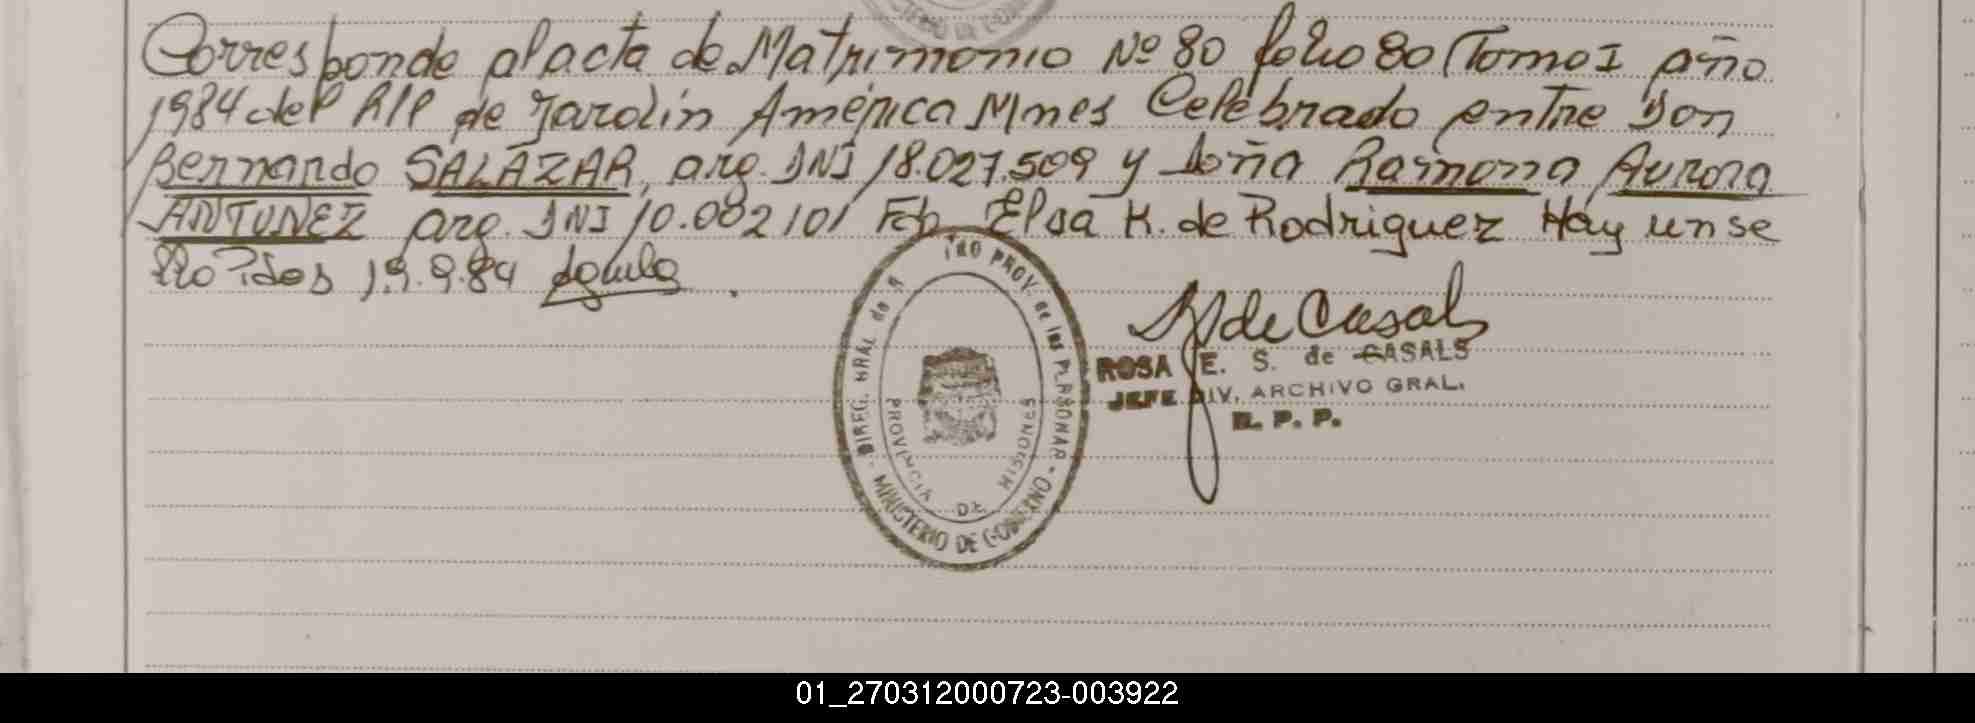 Corresponde al acta de Matrimonio Nº 80 folio 80 Tomo I año
1984 del R/P de Jardín América Mnes Celebrado entre Don
Bernardo SALAZAR, arg. DNI 18.027.509 y doña Ramona Aurora
ANTUNEZ arg. DNI 10.002101 Fdo. Elsa K. de Rodriguez Hay un se
llo Pdas 19.9.84
de Casals
ROSA E. S. de CASALS
JEFE DIV. ARCHIVO GRAL.
R. P. P.
DIREC. GRAL de PROV. de las PERSONAS - MINISTERIO DE GOBIERNO -
PROVINCIA DE MISIONES
01_270312000723-003922